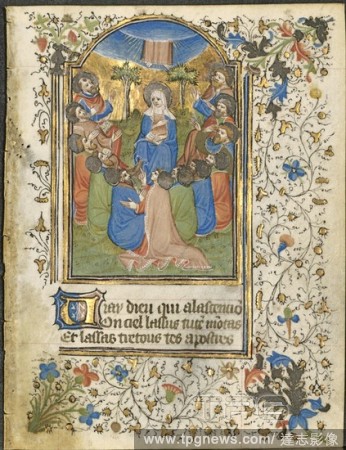 Uray dieu qui alastencio
On ciel lassus tute motas
Et lassas tretous tes apostres
www.tpgnews.com/達志影像